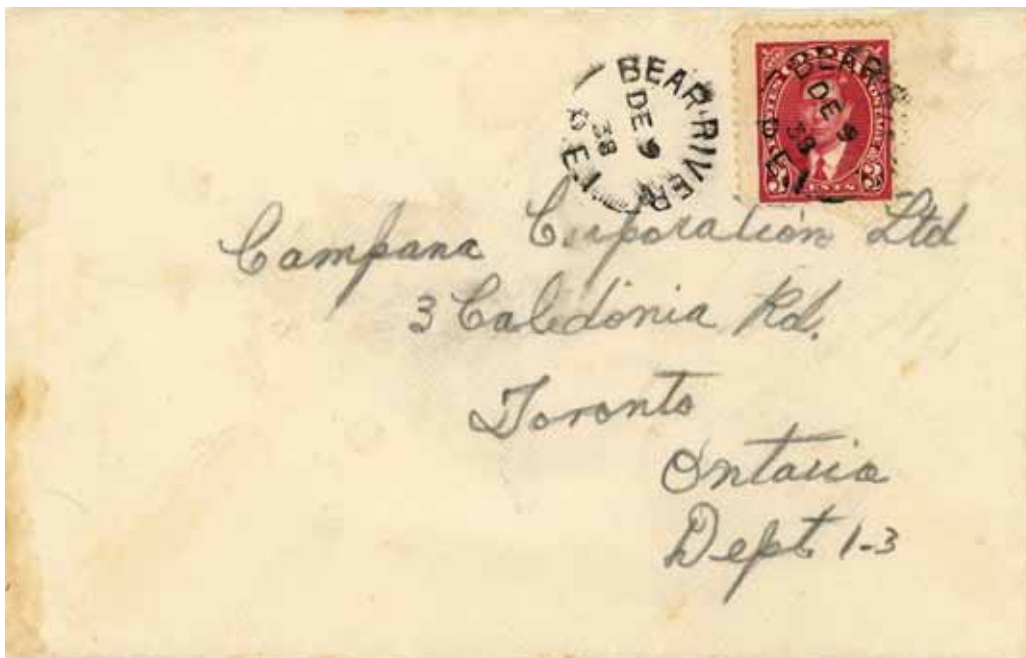 BEAR RIVER
DE 9
38
P.E.I
BEAR R
DE 9
38
P E I
POSTAGE
3 CENTS 3
Campana Corporation Ltd
3 Caledonia Rd.
Toronto
Ontario
Dept. 1-3